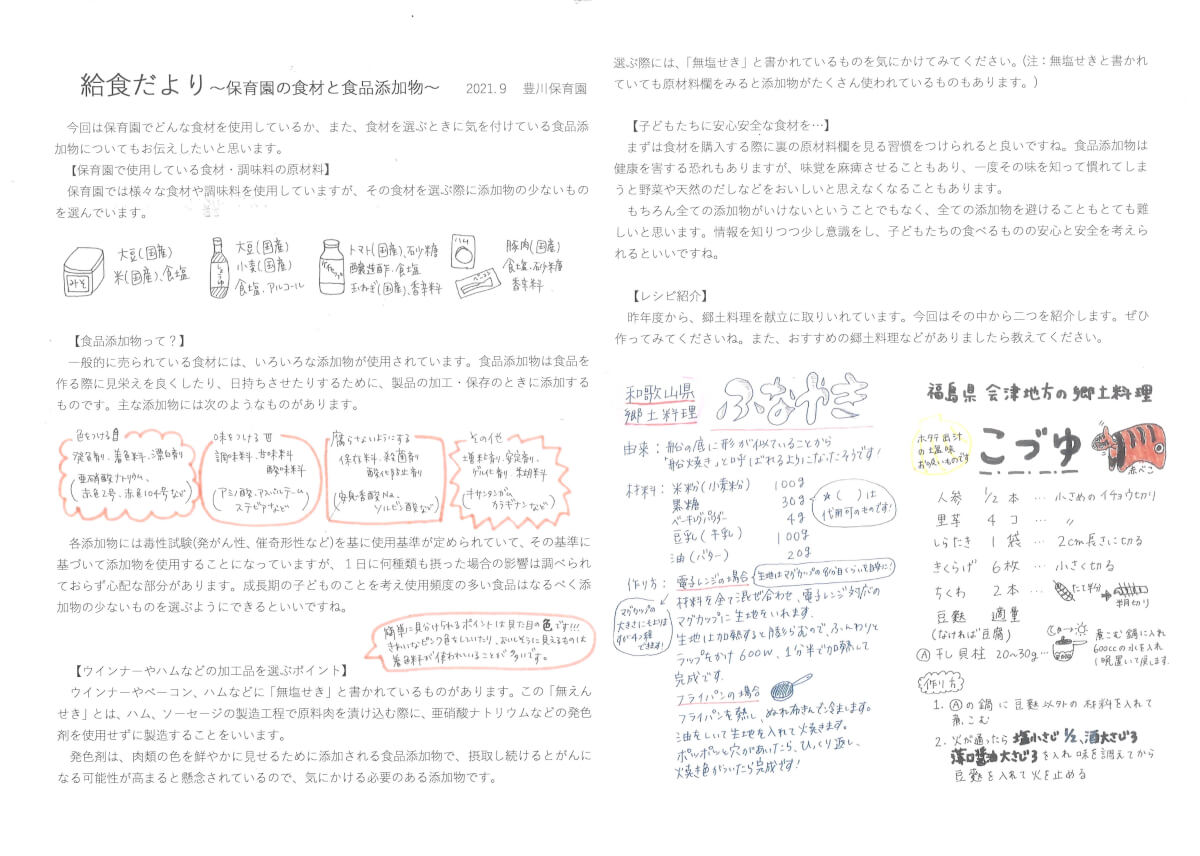 給食だより～保育園の食材と食品添加物～ 2021.9 豊川保育園
今回は保育園でどんな食材を使用しているか、また、食材を選ぶときに気を付けている食品添
加物についてもお伝えしたいと思います。
【保育園で使用している食材・調味料の原材料】
保育園では様々な食材や調味料を使用していますが、その食材を選ぶ際に添加物の少ないもの
を選んでいます。
みそ
大豆(国産)
米(国産)、食塩
しょうゆ
大豆(国産)
小麦(国産)
食塩、アルコール
ケチャップ
トマト(国産)、砂糖
醸造酢、食塩
玉ねぎ(国産)、香辛料
ハム
ベーコン
豚肉(国産)
食塩、砂糖
香辛料
【食品添加物って？】
一般的に売られている食材には、いろいろな添加物が使用されています。食品添加物は食品を
作る際に見栄えを良くしたり、日持ちさせたりするために、製品の加工・保存のときに添加する
ものです。主な添加物には次のようなものがあります。
色をつける
発色剤、着色料、漂白剤
(亜硝酸ナトリウム、
赤色2号、赤色104号など)
味をつける
調味料、甘味料
酸味料
(アミノ酸、アスパルテーム
ステビアなど)
腐らないようにする
保存料、殺菌剤
酸化防止剤
(安息香酸Na、
ソルビン酸など)
その他
増粘剤、安定剤、
ゲル化剤、乳化剤
(キサンタンガム
カラギナンなど)
各添加物には毒性試験(発がん性、催奇形性など)を基に使用基準が定められていて、その基準に
基づいて添加物を使用することになっていますが、１日に何種類も摂った場合の影響は調べられ
ておらず心配な部分があります。成長期の子どものことを考え使用頻度の多い食品はなるべく添
加物の少ないものを選ぶようにできるといいですね。
簡単に見分けられるポイントは見た目の色です!!!
きれいなピンク色をしていたり、おいしそうに見えるものは
着色料が使われていることが多いです。
【ウインナーやハムなどの加工品を選ぶポイント】
ウインナーやベーコン、ハムなどに「無塩せき」と書かれているものがあります。この「無えん
せき」とは、ハム、ソーセージの製造工程で原料肉を漬け込む際に、亜硝酸ナトリウムなどの発色
剤を使用せずに製造することをいいます。
発色剤は、肉類の色を鮮やかに見せるために添加される食品添加物で、摂取し続けるとがんに
なる可能性が高まると懸念されているので、気にかける必要のある添加物です。
選ぶ際には、「無塩せき」と書かれているものを気にかけてみてください。(注：無塩せきと書かれ
ていても原材料欄をみると添加物がたくさん使われているものもあります。)
【子どもたちに安心安全な食材を…】
まずは食材を購入する際に裏の原材料欄を見る習慣をつけられると良いですね。食品添加物は
健康を害する恐れもありますが、味覚を麻痺させることもあり、一度その味を知って慣れてしま
うと野菜や天然のだしなどをおいしいと思えなくなることもあります。
もちろん全ての添加物がいけないということでもなく、全ての添加物を避けることもとても難
しいと思います。情報を知りつつ少し意識をし、子どもたちの食べるものの安心と安全を考えら
れるといいですね。
【レシピ紹介】
昨年度から、郷土料理を献立に取りいれています。今回はその中から二つを紹介します。ぜひ
作ってみてくださいね。また、おすすめの郷土料理などがありましたら教えてください。
和歌山県
郷土料理
ふなやき
由来：船の底に形が似ていることから
「船焼き」と呼ばれるようになったそうです!
材料：米粉(小麦粉) 100g
黒糖 30g
ベーキングパウダー 4g
豆乳(牛乳) 100g
油(バター) 20g
★( )は
代用可のものです!
作り方：電子レンジの場合
生地はマグカップの8分目くらいを目安に!
マグカップの
大きさにもよりますが4個
できます!
材料を全て混ぜ合わせ、電子レンジ対応の
マグカップに生地をいれます。
生地は加熱すると膨らむので、ふんわりと
ラップをかけ600W、1分半で加熱して
完成です。
フライパンの場合
フライパンを熱し、ぬれ布きんで冷まします。
油をしいて生地を入れて焼きます。
ポツポツと穴があいたら、ひっくり返し、
焼き色がついたら完成です!
福島県会津地方の郷土料理
ホタテ出汁
の塩味
お吸いものです
こづゆ
赤べこ
人参 1/2本 … 小さめのイチョウ切り
里芋 4コ … 〃
しらたき 1袋 … 2cm長さに切る
きくらげ 6枚 … 小さく切る
ちくわ 2本 … たて半分 → 半月切り
豆麩 適量
(なければ豆腐)
Ⓐ干し貝柱 20～30g…
煮こむ鍋に入れ
600ccの水を入れ
1晩置いて戻します。
作り方
1. Ⓐの鍋に豆麩以外の材料を入れて
煮こむ
2. 火が通ったら塩小さじ1/2、酒大さじ3
薄口醤油大さじ3を入れ味を調えてから
豆麩を入れて火を止める